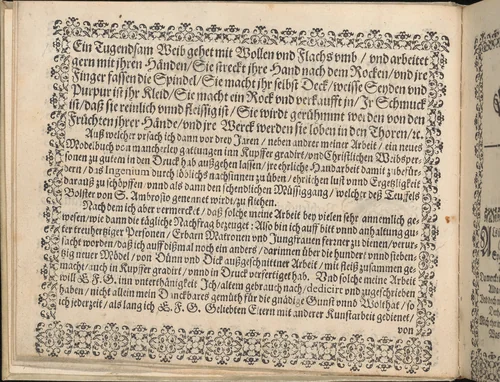 Ein Tugendsam Weib gehet mit Wollen vnd Flachs vmb / vnd arbeitet
gern mit jhren Händen / Sie streckt jhre Hand nach dem Rocken / vnd jre
Finger fassen die Spindel / Sie macht jhr selbst Deck / weisse Seyden vnd
Purpur ist jhr Kleid / Sie macht ein Rock vnd verkaufft jn / Jr Schmuck
ist / daß sie reinlich vnnd fleissig ist / Sie wirdt gerühmmt worden von den
Früchten jhrer Hände / vnd jre Werck werden sie loben in den Thoren / ꝛc.
Auß welcher vrsach ich dann vor drey Jaren / neben andrer meiner Arbeit / ein neues
Modelbuch von mancherley gattungen inn Kupffer gradirt / vnd Christlichen Weibsper-
sonen zu gutem in den Druck hab außgehen lassen / jre ehrliche Handarbeit damit zubefür-
dern / das Ingenium durch löblichs nachsinnen zu üben / ehrlichen lust vnnd Ergetzligkeit
darauß zu schöpffen / vnnd als dann den schendlichen Müssiggang / welcher deß Teuffels
Bolster von S. Ambrosio genennet wirdt / zu fliehen.
Nach dem ich aber vermerckt / daß solche meine Arbeit bey vielen sehr annemlich ge-
wesen / wie dann die tägliche Nachfrag bezeuget: Also bin ich auff bitt vnnd anhaltung gu-
ter treuhertziger Personen / Erbarn Matronen vnd Jungfrauen ferner zu dienen / verur-
sacht worden / daß ich auff dißmal noch ein anders / darinnen über die hundert vnnd sieben-
tzig neuer Mödel / von Dünn vnd Dick außgeschnittener Arbeit / mit fleiß zusammen ge-
macht / auch in Kupffer gradirt / vnnd in Druck verfertiget hab. Vnd solche meine Arbeit
will E. F. G. inn vnterthänigkeit Ich / altem gebrauch nach / dedicirt vnd zugeschrieben
haben / nicht allein mein Danckbares gemüth für die gnädige Gunst vnnd Wolthat / so
ich jederzeit / als lang ich E. F. G. Geliebten Eltern mit anderer Kunstarbeit gedienet /
von